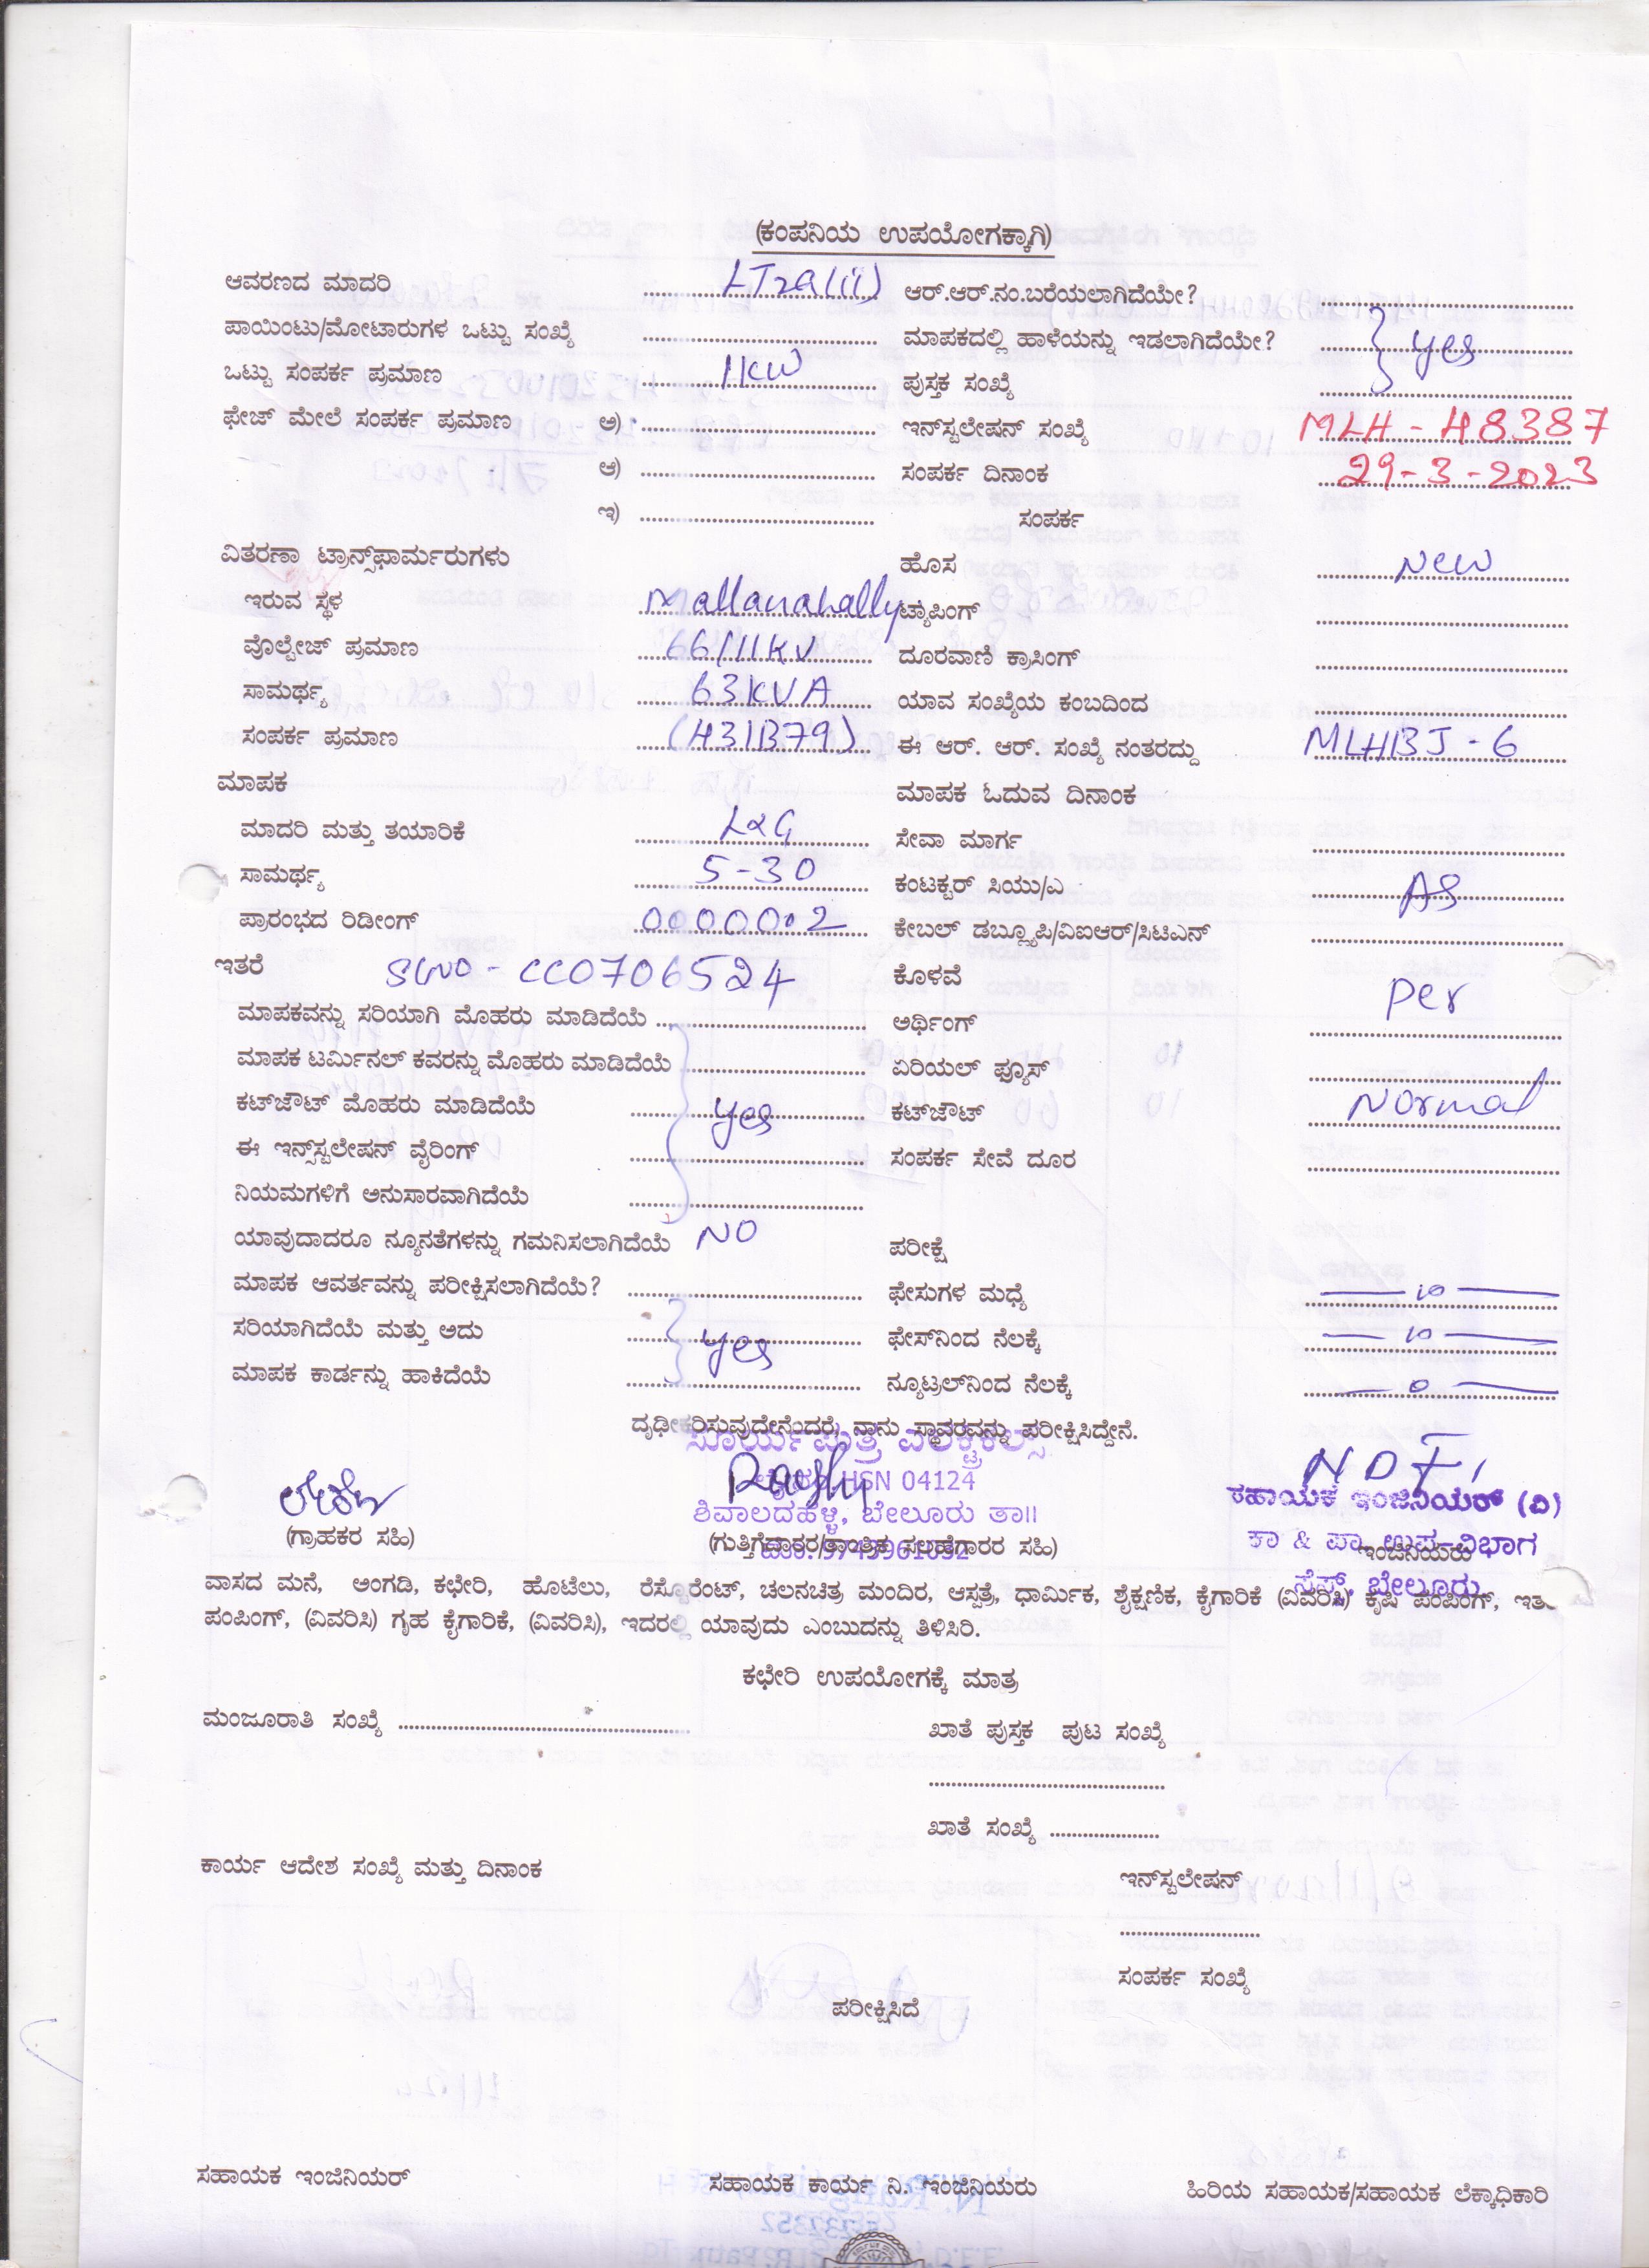 (ಕಂಪನಿಯ ಉಪಯೋಗಕ್ಕಾಗಿ)
ಆವರಣದ ಮಾದರಿ LT2a(ii) ಆರ್.ಆರ್.ನಂ.ಬರೆಯಲಾಗಿದೆಯೇ?
ಪಾಯಿಂಟು/ಮೋಟಾರುಗಳ ಒಟ್ಟು ಸಂಖ್ಯೆ ಮಾಪಕದಲ್ಲಿ ಹಾಳೆಯನ್ನು ಇಡಲಾಗಿದೆಯೇ? yes
ಒಟ್ಟು ಸಂಪರ್ಕ ಪ್ರಮಾಣ 1KW ಪುಸ್ತಕ ಸಂಖ್ಯೆ
ಫೇಜ್ ಮೇಲೆ ಸಂಪರ್ಕ ಪ್ರಮಾಣ ಅ) ಇನ್‌ಸ್ಟಲೇಷನ್ ಸಂಖ್ಯೆ MLH - 48387
ಆ) ಸಂಪರ್ಕ ದಿನಾಂಕ 29-3-2023
ಇ) ಸಂಪರ್ಕ
ವಿತರಣಾ ಟ್ರಾನ್ಸ್‌ಫಾರ್ಮರುಗಳು ಹೊಸ New
ಇರುವ ಸ್ಥಳ Mallanahally ಟ್ಯಾಪಿಂಗ್
ವೊಲ್ಟೇಜ್ ಪ್ರಮಾಣ 66/11KV ದೂರವಾಣಿ ಕ್ರಾಸಿಂಗ್
ಸಾಮರ್ಥ್ಯ 63KVA ಯಾವ ಸಂಖ್ಯೆಯ ಕಂಬದಿಂದ
ಸಂಪರ್ಕ ಪ್ರಮಾಣ (431B79) ಈ ಆರ್. ಆರ್. ಸಂಖ್ಯೆ ನಂತರದ್ದು MLHBJ - 6
ಮಾಪಕ ಮಾಪಕ ಓದುವ ದಿನಾಂಕ
ಮಾದರಿ ಮತ್ತು ತಯಾರಿಕೆ L&G ಸೇವಾ ಮಾರ್ಗ
ಸಾಮರ್ಥ್ಯ 5-30 ಕಂಟಕ್ಟರ್ ಸಿಯು/ಎ AS
ಪ್ರಾರಂಭದ ರಿಡೀಂಗ್ 000000.2 ಕೇಬಲ್ ಡಬ್ಲ್ಯೂಪಿ/ವಿಐಆರ್/ಸಿಟಿಎನ್
ಇತರೆ SLNO - CC0706524 ಕೊಳವೆ Per
ಮಾಪಕವನ್ನು ಸರಿಯಾಗಿ ಮೊಹರು ಮಾಡಿದೆಯೆ ಅರ್ಥಿಂಗ್
ಮಾಪಕ ಟರ್ಮಿನಲ್ ಕವರನ್ನು ಮೊಹರು ಮಾಡಿದೆಯೆ ಏರಿಯಲ್ ಫ್ಯೂಸ್
ಕಟ್‌ಜೌಟ್ ಮೊಹರು ಮಾಡಿದೆಯೆ yes ಕಟ್‌ಜೌಟ್ Normal
ಈ ಇನ್ಸ್‌ಸ್ಟಲೇಷನ್ ವೈರಿಂಗ್ ಸಂಪರ್ಕ ಸೇವೆ ದೂರ
ನಿಯಮಗಳಿಗೆ ಅನುಸಾರವಾಗಿದೆಯೆ
ಯಾವುದಾದರೂ ನ್ಯೂನತೆಗಳನ್ನು ಗಮನಿಸಲಾಗಿದೆಯೆ NO ಪರೀಕ್ಷೆ
ಮಾಪಕ ಆವರ್ತವನ್ನು ಪರೀಕ್ಷಿಸಲಾಗಿದೆಯೆ? ಫೇಸುಗಳ ಮಧ್ಯೆ
ಸರಿಯಾಗಿದೆಯೆ ಮತ್ತು ಅದು yes ಫೇಸ್‌ನಿಂದ ನೆಲಕ್ಕೆ
ಮಾಪಕ ಕಾರ್ಡನ್ನು ಹಾಕಿದೆಯೆ ನ್ಯೂಟ್ರಲ್‌ನಿಂದ ನೆಲಕ್ಕೆ
ದೃಢೀಕರಿಸುವುದೇನೆಂದರೆ, ನಾನು ಸ್ಥಾವರವನ್ನು ಪರೀಕ್ಷಿಸಿದ್ದೇನೆ.
HSN 04124
ಶಿವಾಲದಹಳ್ಳಿ, ಬೇಲೂರು ತಾ॥
ಸಹಾಯಕ ಇಂಜಿನಿಯರ್ (ವಿ)
ಕಾ & ಪಾ ಉಪ-ವಿಭಾಗ
ಸೆಸ್ಕ್, ಬೇಲೂರು
(ಗ್ರಾಹಕರ ಸಹಿ) (ಗುತ್ತಿಗೆದಾರರ/ತಾಂತ್ರಿಕ ಸಲಹೆಗಾರರ ಸಹಿ) ಇಂಜಿನಿಯರು
ವಾಸದ ಮನೆ, ಅಂಗಡಿ, ಕಛೇರಿ, ಹೊಟೆಲು, ರೆಸ್ಟೊರೆಂಟ್, ಚಲನಚಿತ್ರ ಮಂದಿರ, ಆಸ್ಪತ್ರೆ, ಧಾರ್ಮಿಕ, ಶೈಕ್ಷಣಿಕ, ಕೈಗಾರಿಕೆ (ವಿವರಿಸಿ) ಕೃಷಿ ಪಂಪಿಂಗ್,
ಪಂಪಿಂಗ್, (ವಿವರಿಸಿ) ಗೃಹ ಕೈಗಾರಿಕೆ, (ವಿವರಿಸಿ), ಇದರಲ್ಲಿ ಯಾವುದು ಎಂಬುದನ್ನು ತಿಳಿಸಿರಿ.
ಕಛೇರಿ ಉಪಯೋಗಕ್ಕೆ ಮಾತ್ರ
ಮಂಜೂರಾತಿ ಸಂಖ್ಯೆ ಖಾತೆ ಪುಸ್ತಕ ಪುಟ ಸಂಖ್ಯೆ
ಖಾತೆ ಸಂಖ್ಯೆ
ಕಾರ್ಯ ಆದೇಶ ಸಂಖ್ಯೆ ಮತ್ತು ದಿನಾಂಕ ಇನ್‌ಸ್ಟಲೇಷನ್
ಸಂಪರ್ಕ ಸಂಖ್ಯೆ
ಪರೀಕ್ಷಿಸಿದೆ
ಸಹಾಯಕ ಇಂಜಿನಿಯರ್ ಸಹಾಯಕ ಕಾರ್ಯ ನಿ. ಇಂಜಿನಿಯರು ಹಿರಿಯ ಸಹಾಯಕ/ಸಹಾಯಕ ಲೆಕ್ಕಾಧಿಕಾರಿ